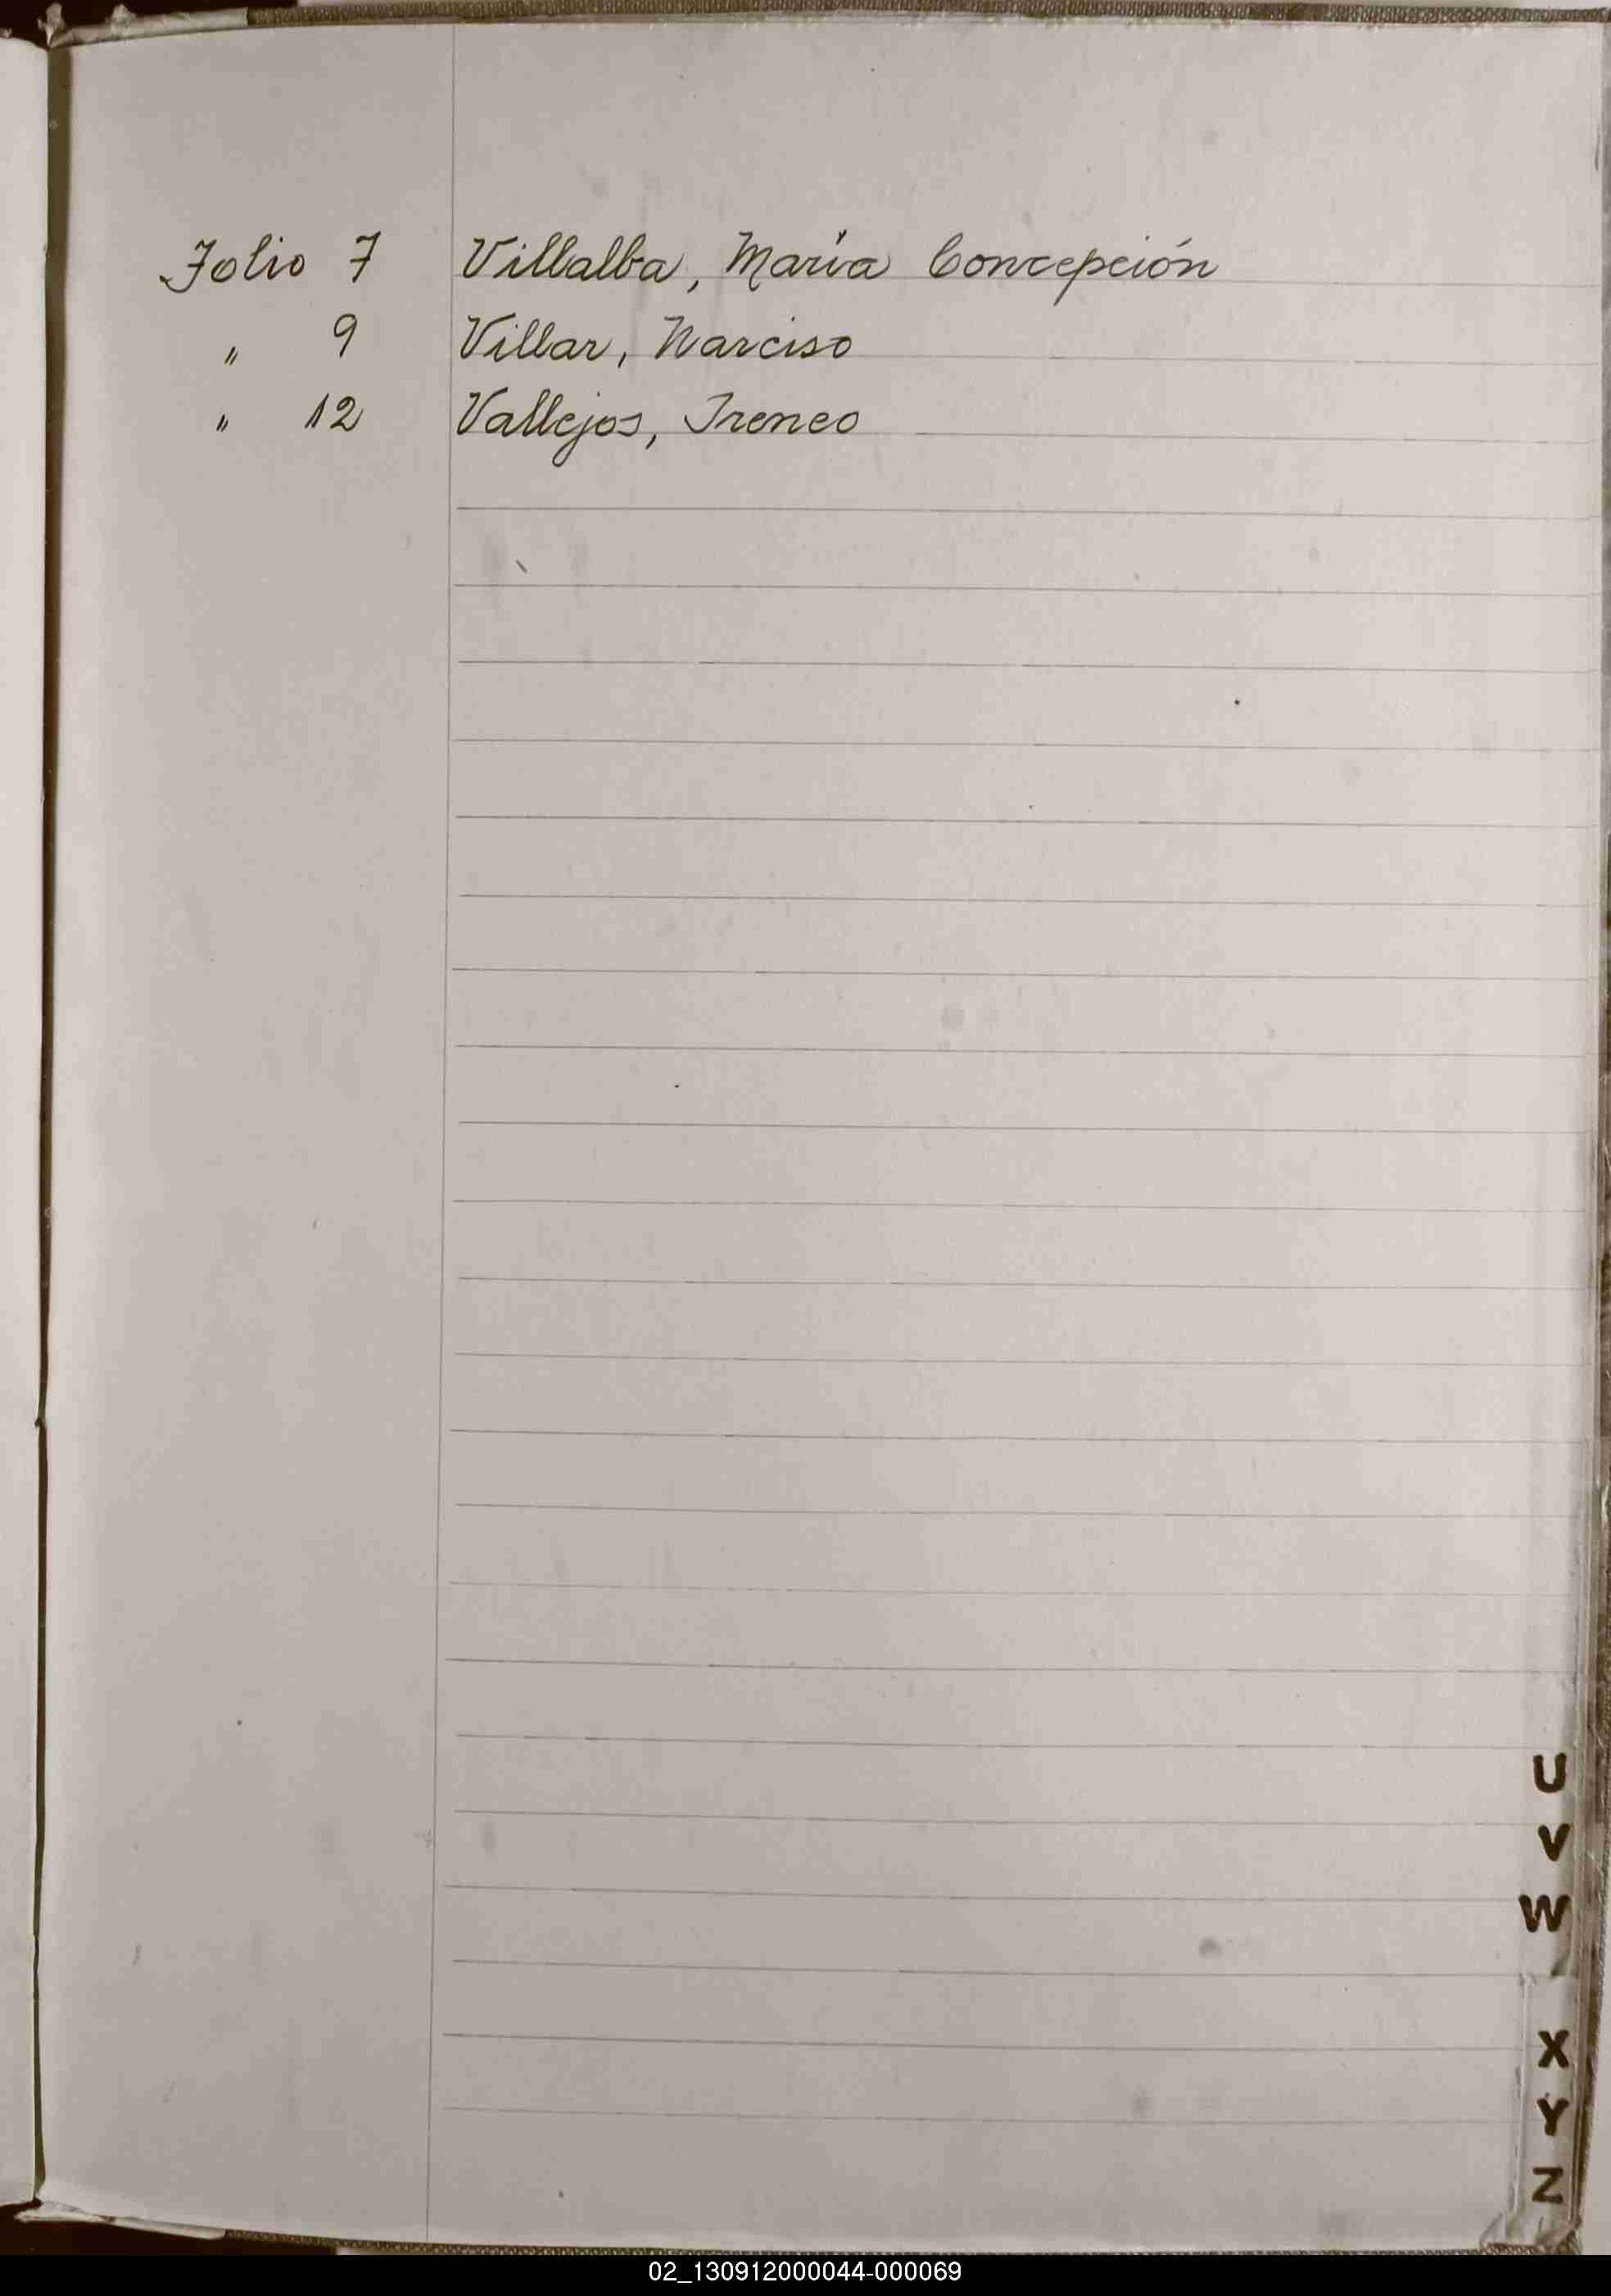 Folio 7 Villalba, María Concepción
" 9 Villar, Narciso
" 12 Vallejos, Ireneo
U
V
W
X
Y
Z
02_130912000044-000069